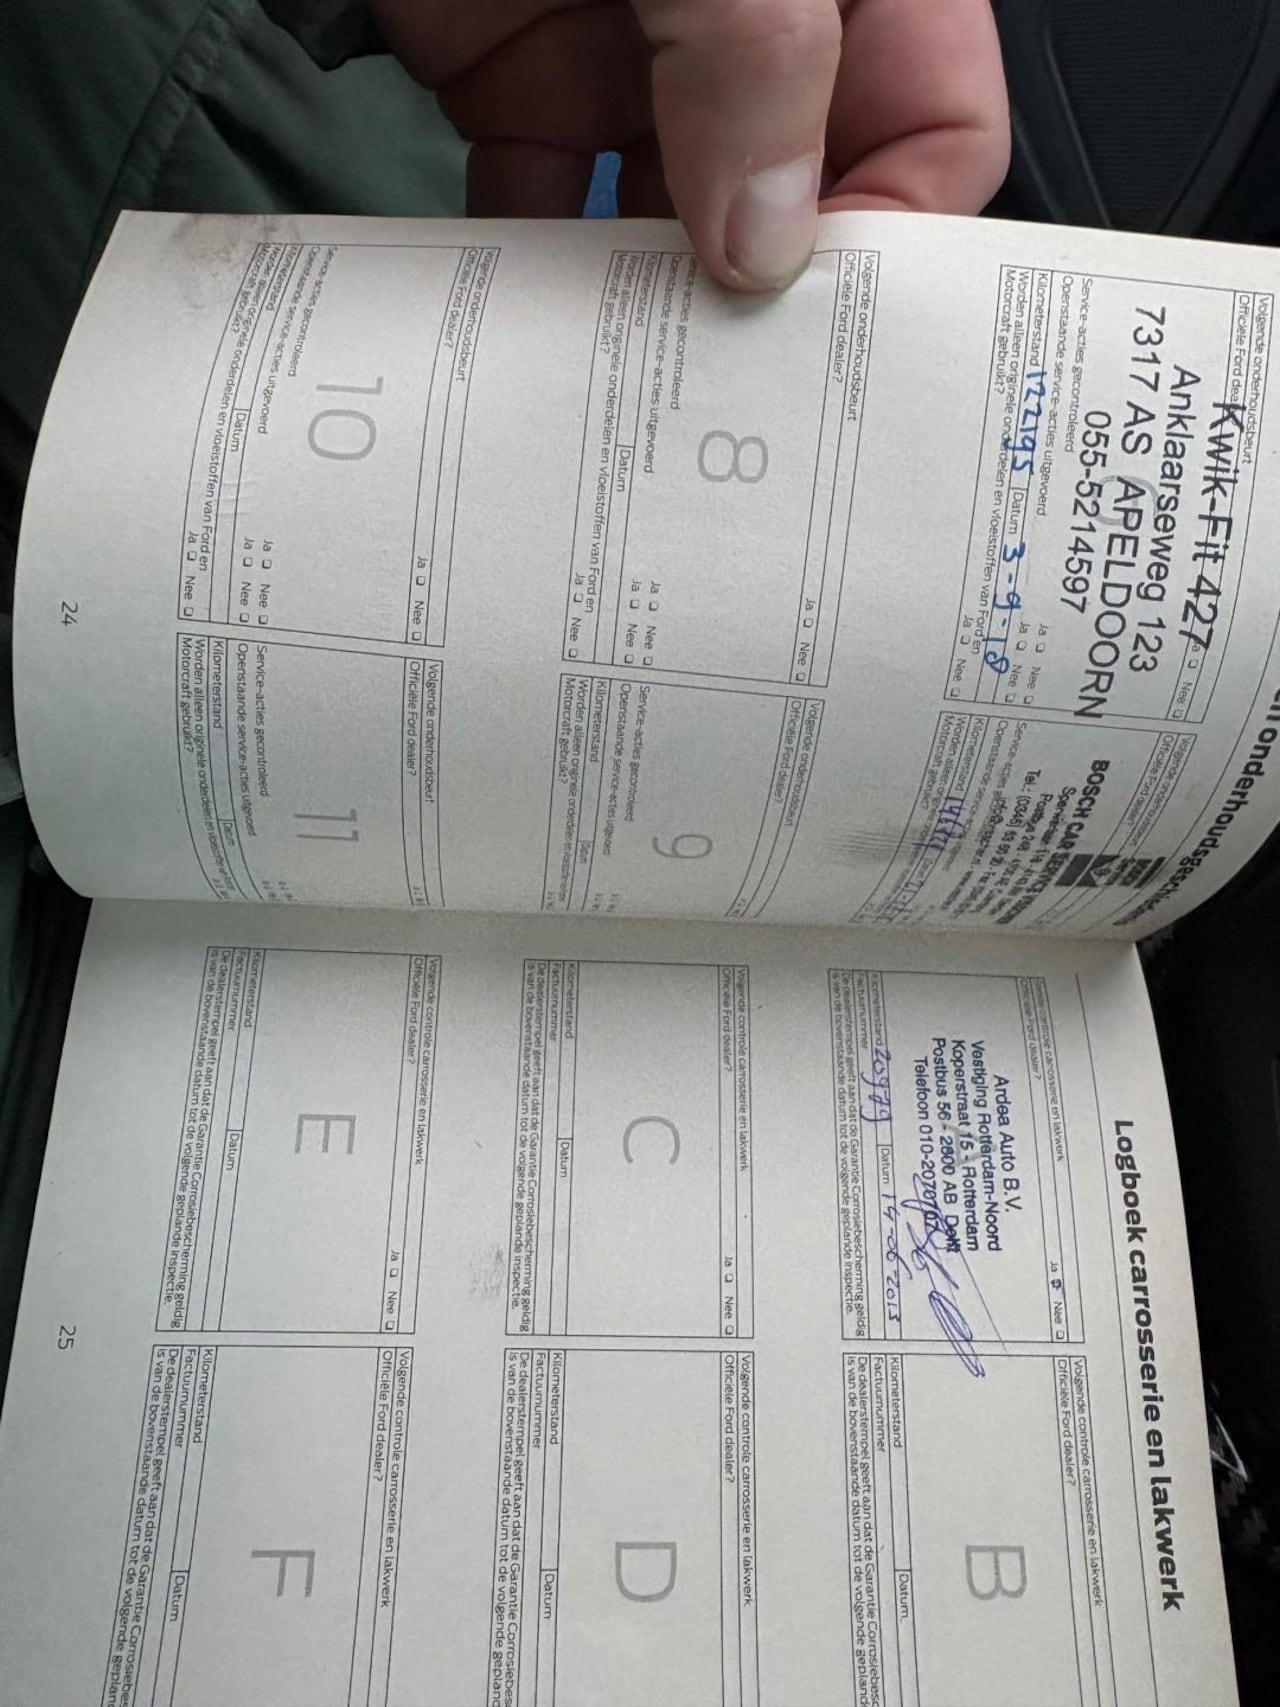 Volgende onderhoudsbeurt
Officiële Ford
Kwik-Fit 427
Ja Nee
Anklaarseweg 123
7317 AS APELDOORN
055-5214597
Service-acties gecontroleerd
Ja Nee
Openstaande service-acties uitgevoerd
Ja Nee
Kilometerstand 122195 Datum 3-9-18
Worden alleen originele onderdelen en vloeistoffen van Ford en
Motorcraft gebruikt?
Ja Nee
Volgende onderhoudsbeurt
Officiële Ford dealer?
BOSCH CAR SERVICE
Service-acties
Openstaande service-acties
Kilometerstand
Worden alleen
Motorcraft gebruikt?
Volgende onderhoudsbeurt
Officiële Ford dealer?
Ja Nee
8
Service-acties gecontroleerd
Ja Nee
Openstaande service-acties uitgevoerd
Ja Nee
Kilometerstand Datum
Worden alleen originele onderdelen en vloeistoffen van Ford en
Motorcraft gebruikt?
Ja Nee
Volgende onderhoudsbeurt
Officiële Ford dealer?
9
Service-acties gecontroleerd
Openstaande service-acties uitgevoerd
Kilometerstand Datum
Worden alleen originele onderdelen en vloeistoffen
Motorcraft gebruikt?
Volgende onderhoudsbeurt
Officiële Ford dealer?
Ja Nee
10
Service-acties gecontroleerd
Ja Nee
Openstaande service-acties uitgevoerd
Ja Nee
Kilometerstand Datum
Worden alleen originele onderdelen en vloeistoffen van Ford en
Motorcraft gebruikt?
Ja Nee
Volgende onderhoudsbeurt
Officiële Ford dealer?
11
Service-acties gecontroleerd
Openstaande service-acties uitgevoerd
Kilometerstand Datum
Worden alleen originele onderdelen en vloeistoffen
Motorcraft gebruikt?
24
Logboek carrosserie en lakwerk
Volgende controle carrosserie en lakwerk
Officiële Ford dealer?
Ja Nee
Ardea Auto B.V.
Vestiging Rotterdam-Noord
Koperstraat 15 - Rotterdam
Postbus 56 - 2600 AB Delft
Telefoon 010-2070
Kilometerstand 20979 Datum 14-06-2013
Factuurnummer
De dealerstempel geeft aan dat de Garantie Corrosiebescherming geldig
is van de bovenstaande datum tot de volgende geplande inspectie.
Volgende controle carrosserie en lakwerk
Officiële Ford dealer?
B
Kilometerstand Datum
Factuurnummer
De dealerstempel geeft aan dat de Garantie
is van de bovenstaande datum tot de volgende
Volgende controle carrosserie en lakwerk
Officiële Ford dealer?
Ja Nee
C
Kilometerstand Datum
Factuurnummer
De dealerstempel geeft aan dat de Garantie Corrosiebescherming geldig
is van de bovenstaande datum tot de volgende geplande inspectie.
Volgende controle carrosserie en lakwerk
Officiële Ford dealer?
D
Kilometerstand Datum
Factuurnummer
De dealerstempel geeft aan dat de Garantie
is van de bovenstaande datum tot de volgende
Volgende controle carrosserie en lakwerk
Officiële Ford dealer?
Ja Nee
E
Kilometerstand Datum
Factuurnummer
De dealerstempel geeft aan dat de Garantie Corrosiebescherming geldig
is van de bovenstaande datum tot de volgende geplande inspectie.
Volgende controle carrosserie en lakwerk
Officiële Ford dealer?
F
Kilometerstand Datum
Factuurnummer
De dealerstempel geeft aan dat de Garantie
is van de bovenstaande datum tot de volgende
25